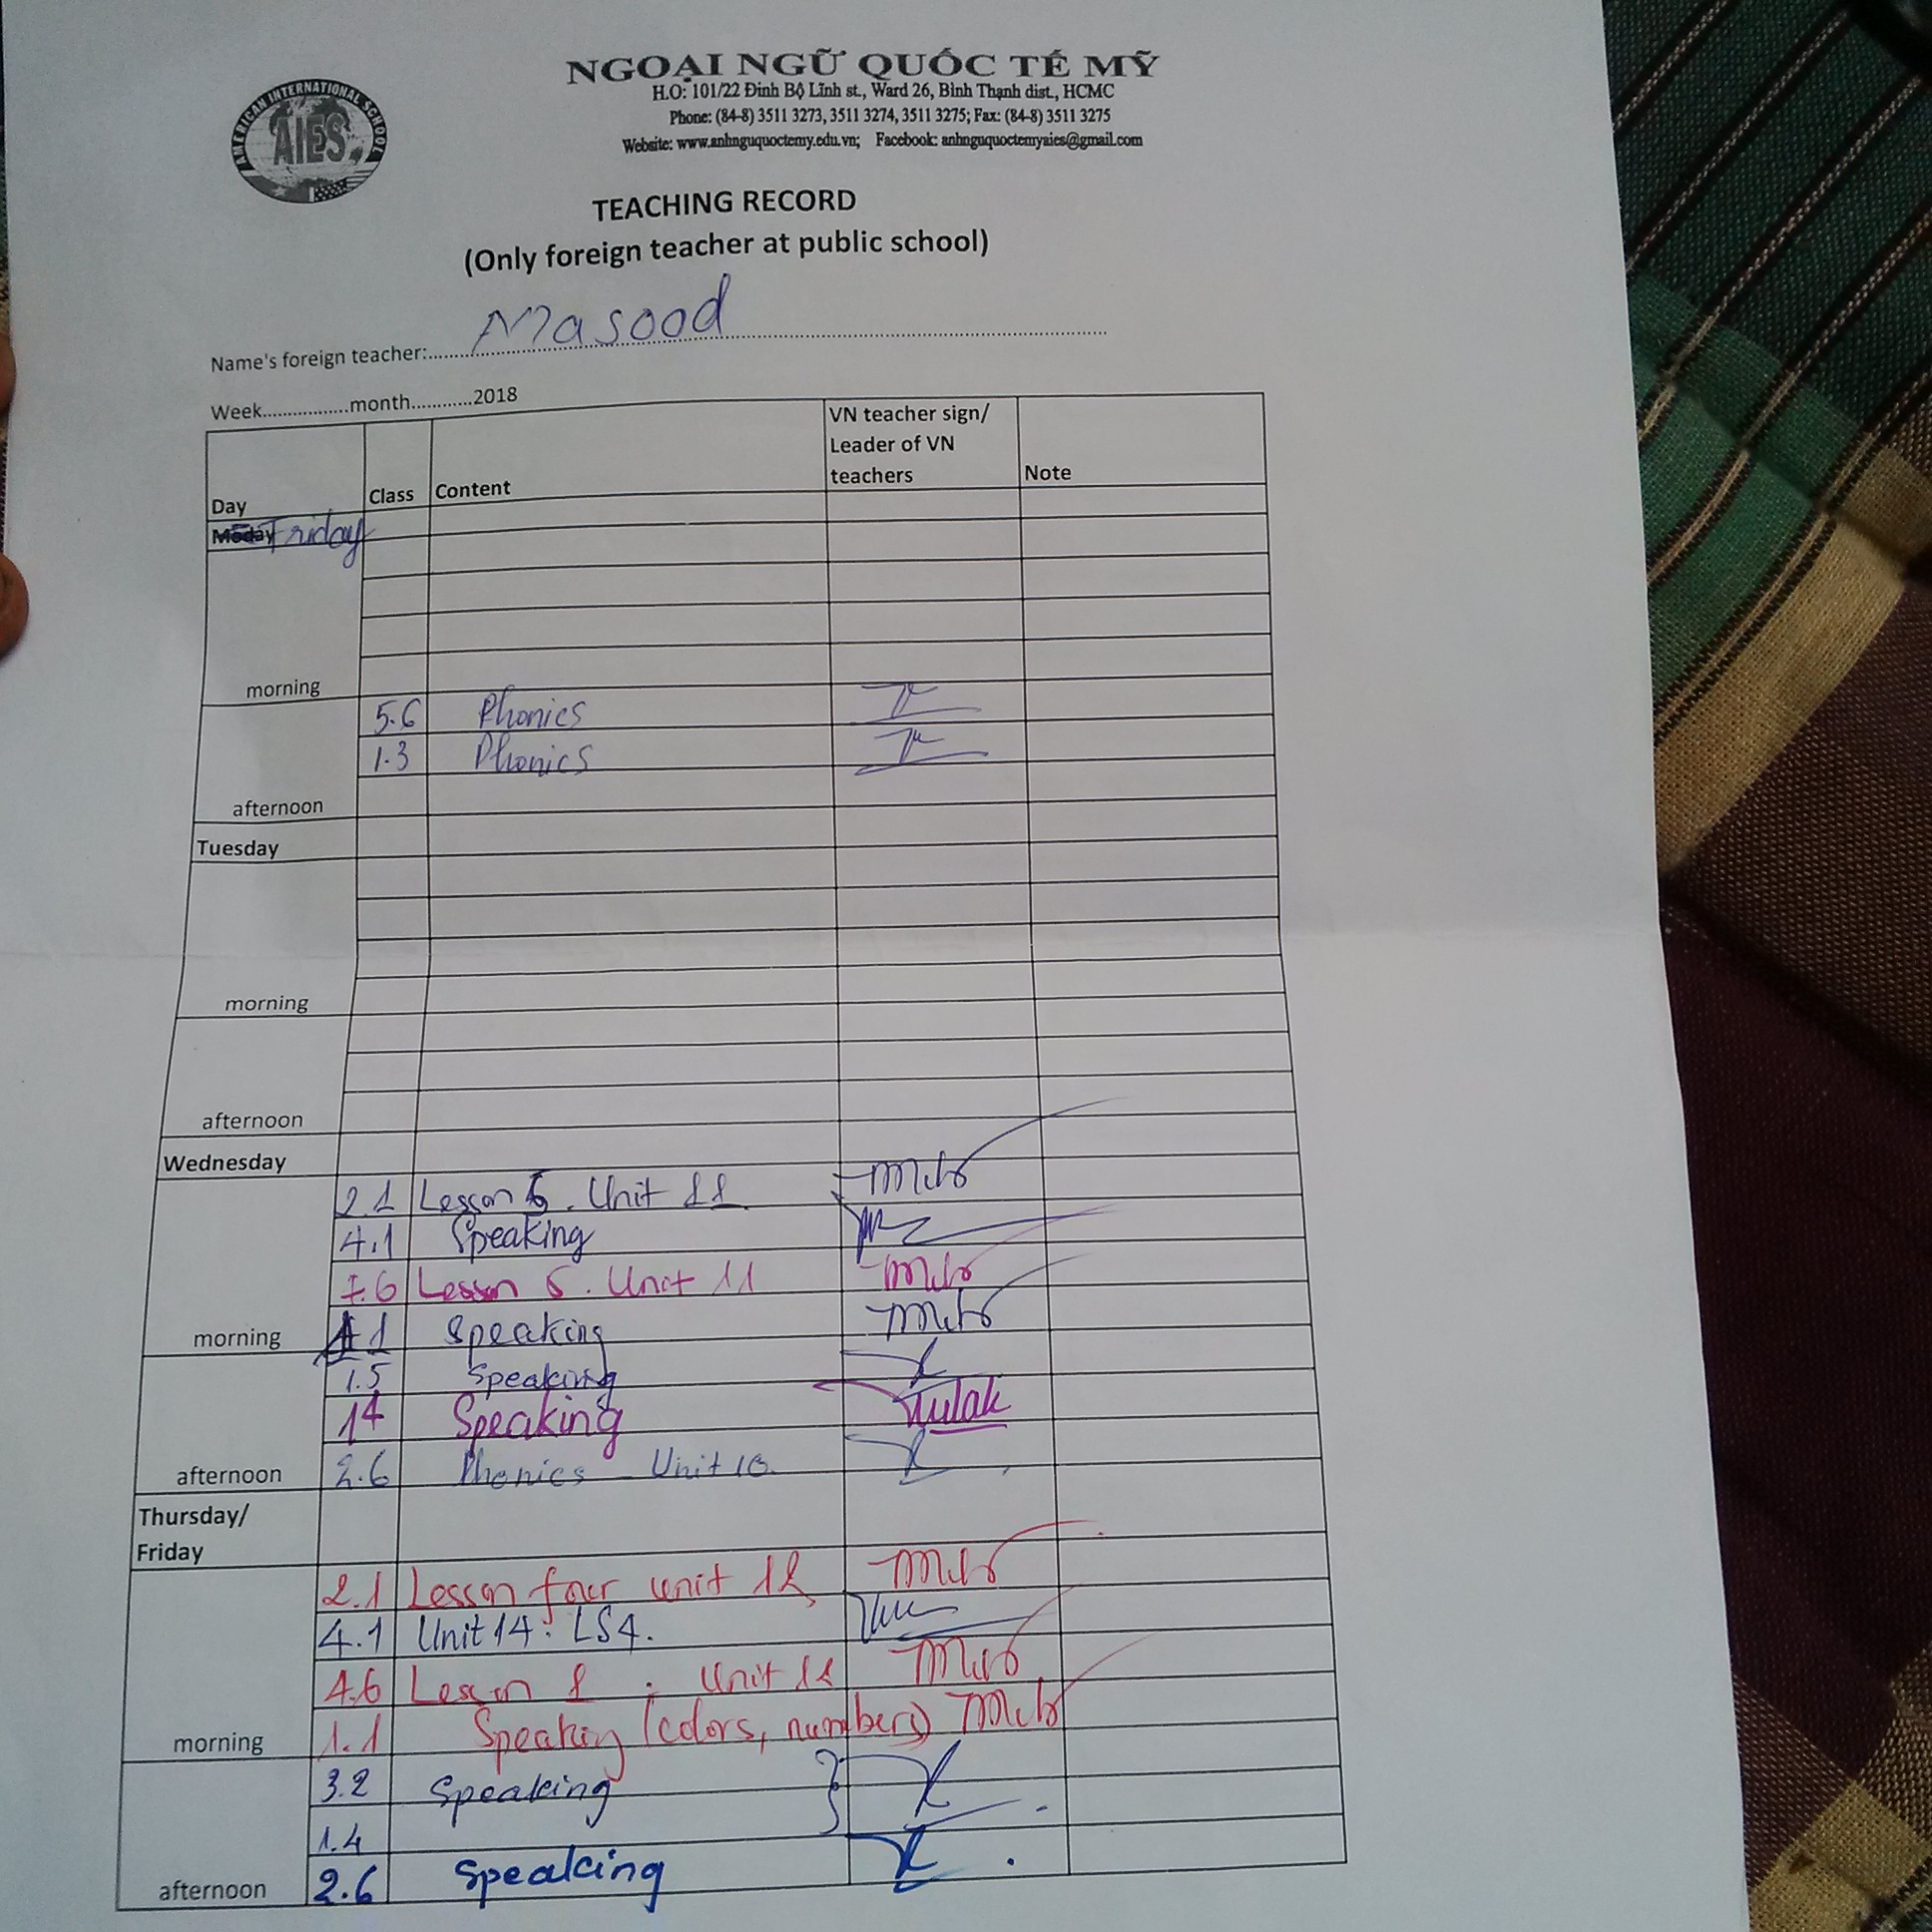 AMERICAN INTERNATIONAL SCHOOL
AIES
NGOẠI NGỮ QUỐC TẾ MỸ
H.O: 101/22 Đinh Bộ Lĩnh st., Ward 26, Bình Thạnh dist., HCMC
Phone: (84-8) 3511 3273, 3511 3274, 3511 3275; Fax: (84-8) 3511 3275
Website: www.anhnguquoctemy.edu.vn; Facebook: anhnguquoctemyaies@gmail.com
TEACHING RECORD
(Only foreign teacher at public school)
Name's foreign teacher:.......Masood.......
Week.................month............2018
Day Class Content VN teacher sign/ Leader of VN teachers Note
Moday Friday
morning
5.6 Phonics
1.3 Phonics
afternoon
Tuesday
morning
afternoon
Wednesday
2.1 Lesson 6. Unit 11
4.1 Speaking
Lesson 5. Unit 11
morning 1 Speaking
1.5 Speaking
14 Speaking
afternoon 2.6 Phonics - Unit 10
Thursday/
Friday
2.1 Lesson four unit 12
4.1 Unit 14: LS4.
4.6 Lesson Unit
morning 1.1 Speaking (colors, numbers)
3.2 Speaking
1.4
afternoon 2.6 Speaking